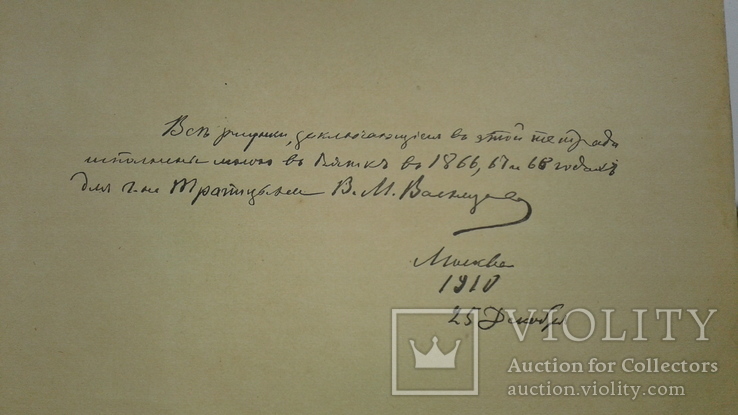 Всѣ рисунки, заключающіеся въ этой тетради
исполнены мною въ Вяткѣ въ 1866, 67 и 68 годахъ
для г-на Трапицына В. М. Васнецовъ
Москва
1910
25 Декабря
VIOLITY
Auction for Collectors
auction.violity.com